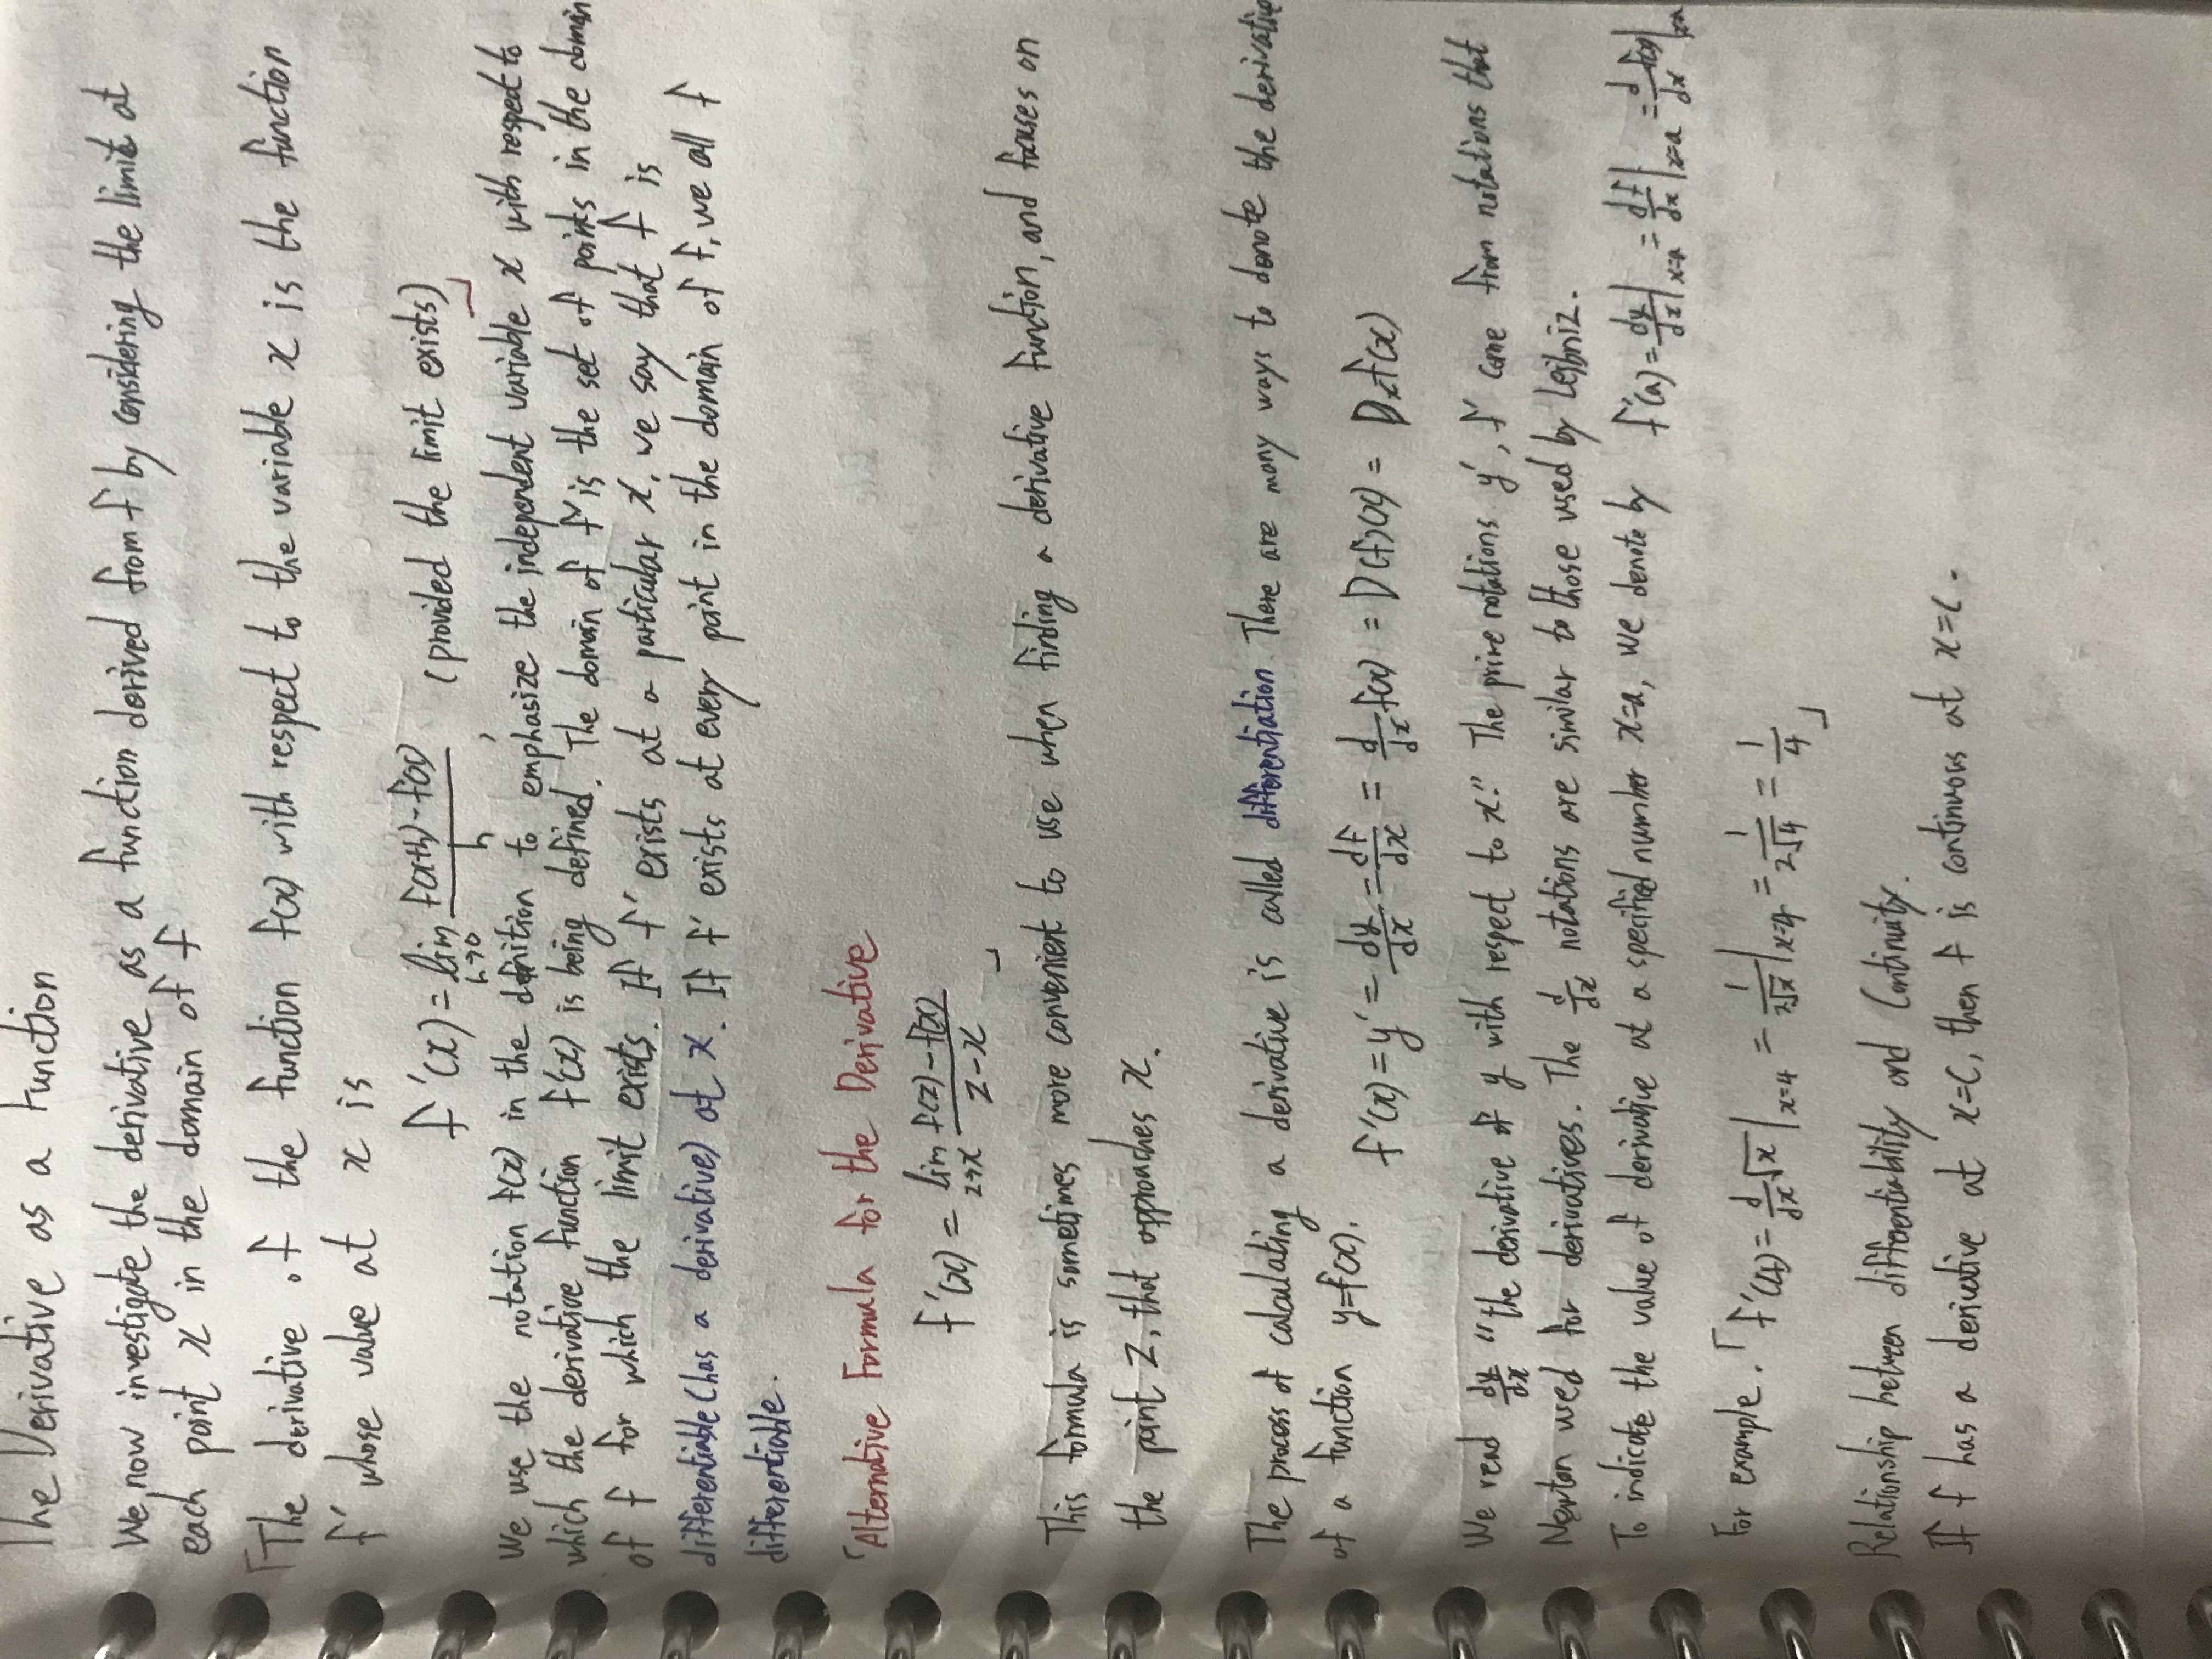 The Derivative as a function
We now investigate the derivative as a function derived from f by considering the limit at
each point x in the domain of f
「The derivative of the function f(x) with respect to the variable x is the function
f' whose value at x is
f'(x) = lim h→0 (f(x+h)-f(x))/h (provided the limit exists)」
We use the notation f(x) in the definition to emphasize the independent variable x with respect to
which the derivative function f'(x) is being defined. The domain of f' is the set of points in the domain
of f for which the limit exists. If f' exists at a particular x, we say that f is
differentiable (has a derivative) at x. If f' exists at every point in the domain of f, we all f
differentiable.
「Alternative Formula for the Derivative
f'(x) = lim z→x (f(z)-f(x))/(z-x) 」
This formula is sometimes more convenient to use when finding a derivative function, and focuses on
the point z, that approaches x.
The process of calculating a derivative is called differentiation. There are many ways to denote the derivative
of a function y=f(x).
f'(x) = y' = dy/dx = df/dx = d/dx f(x) = D(f)(x) = Dxf(x)
We read dy/dx "the derivative of y with respect to x." The prime notations y', f' come from notations that
Newton used for derivatives. The d/dx notations are similar to those used by Leibniz.
To indicate the value of derivative at a specified number x=a, we denote by f'(a) = dy/dx|x=a = df/dx|x=a = d/dx f(x)|x=a
For example.「f'(4) = d/dx √x|x=4 = 1/2√x|x=4 = 1/2√4 = 1/4」
Relationship between differentiability and Continuity.
If f has a derivative at x=c, then f is continuous at x=c.